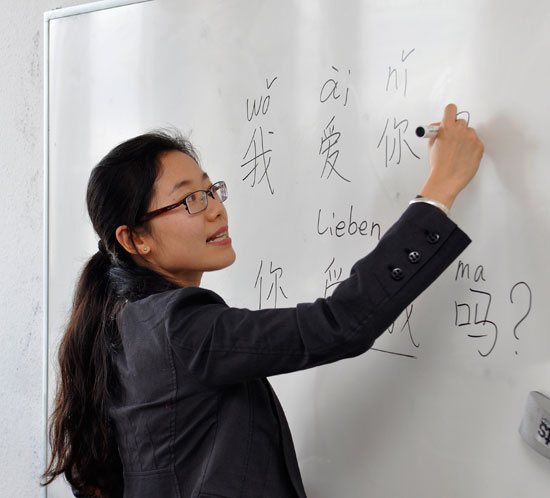 wǒ ài nǐ
我 爱 你
lieben
ma
你 爱 我 吗?